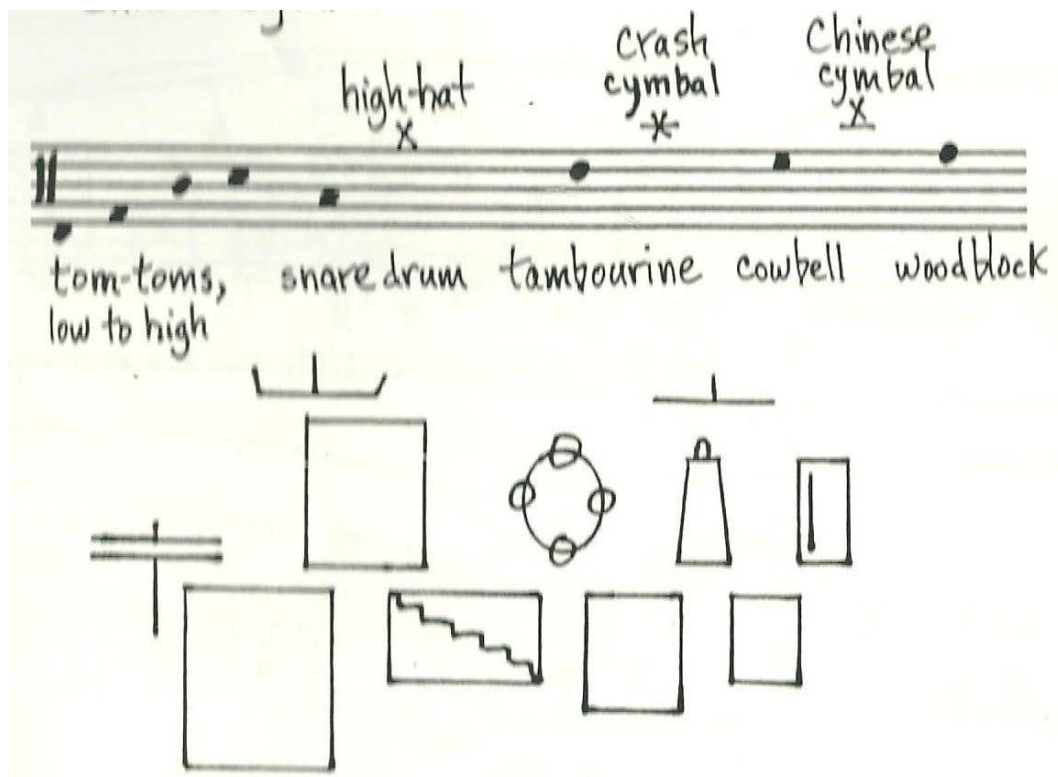 high-hat
crash
cymbal
Chinese
cymbal
tom-toms,
low to high
snare drum
tambourine
cowbell
woodblock